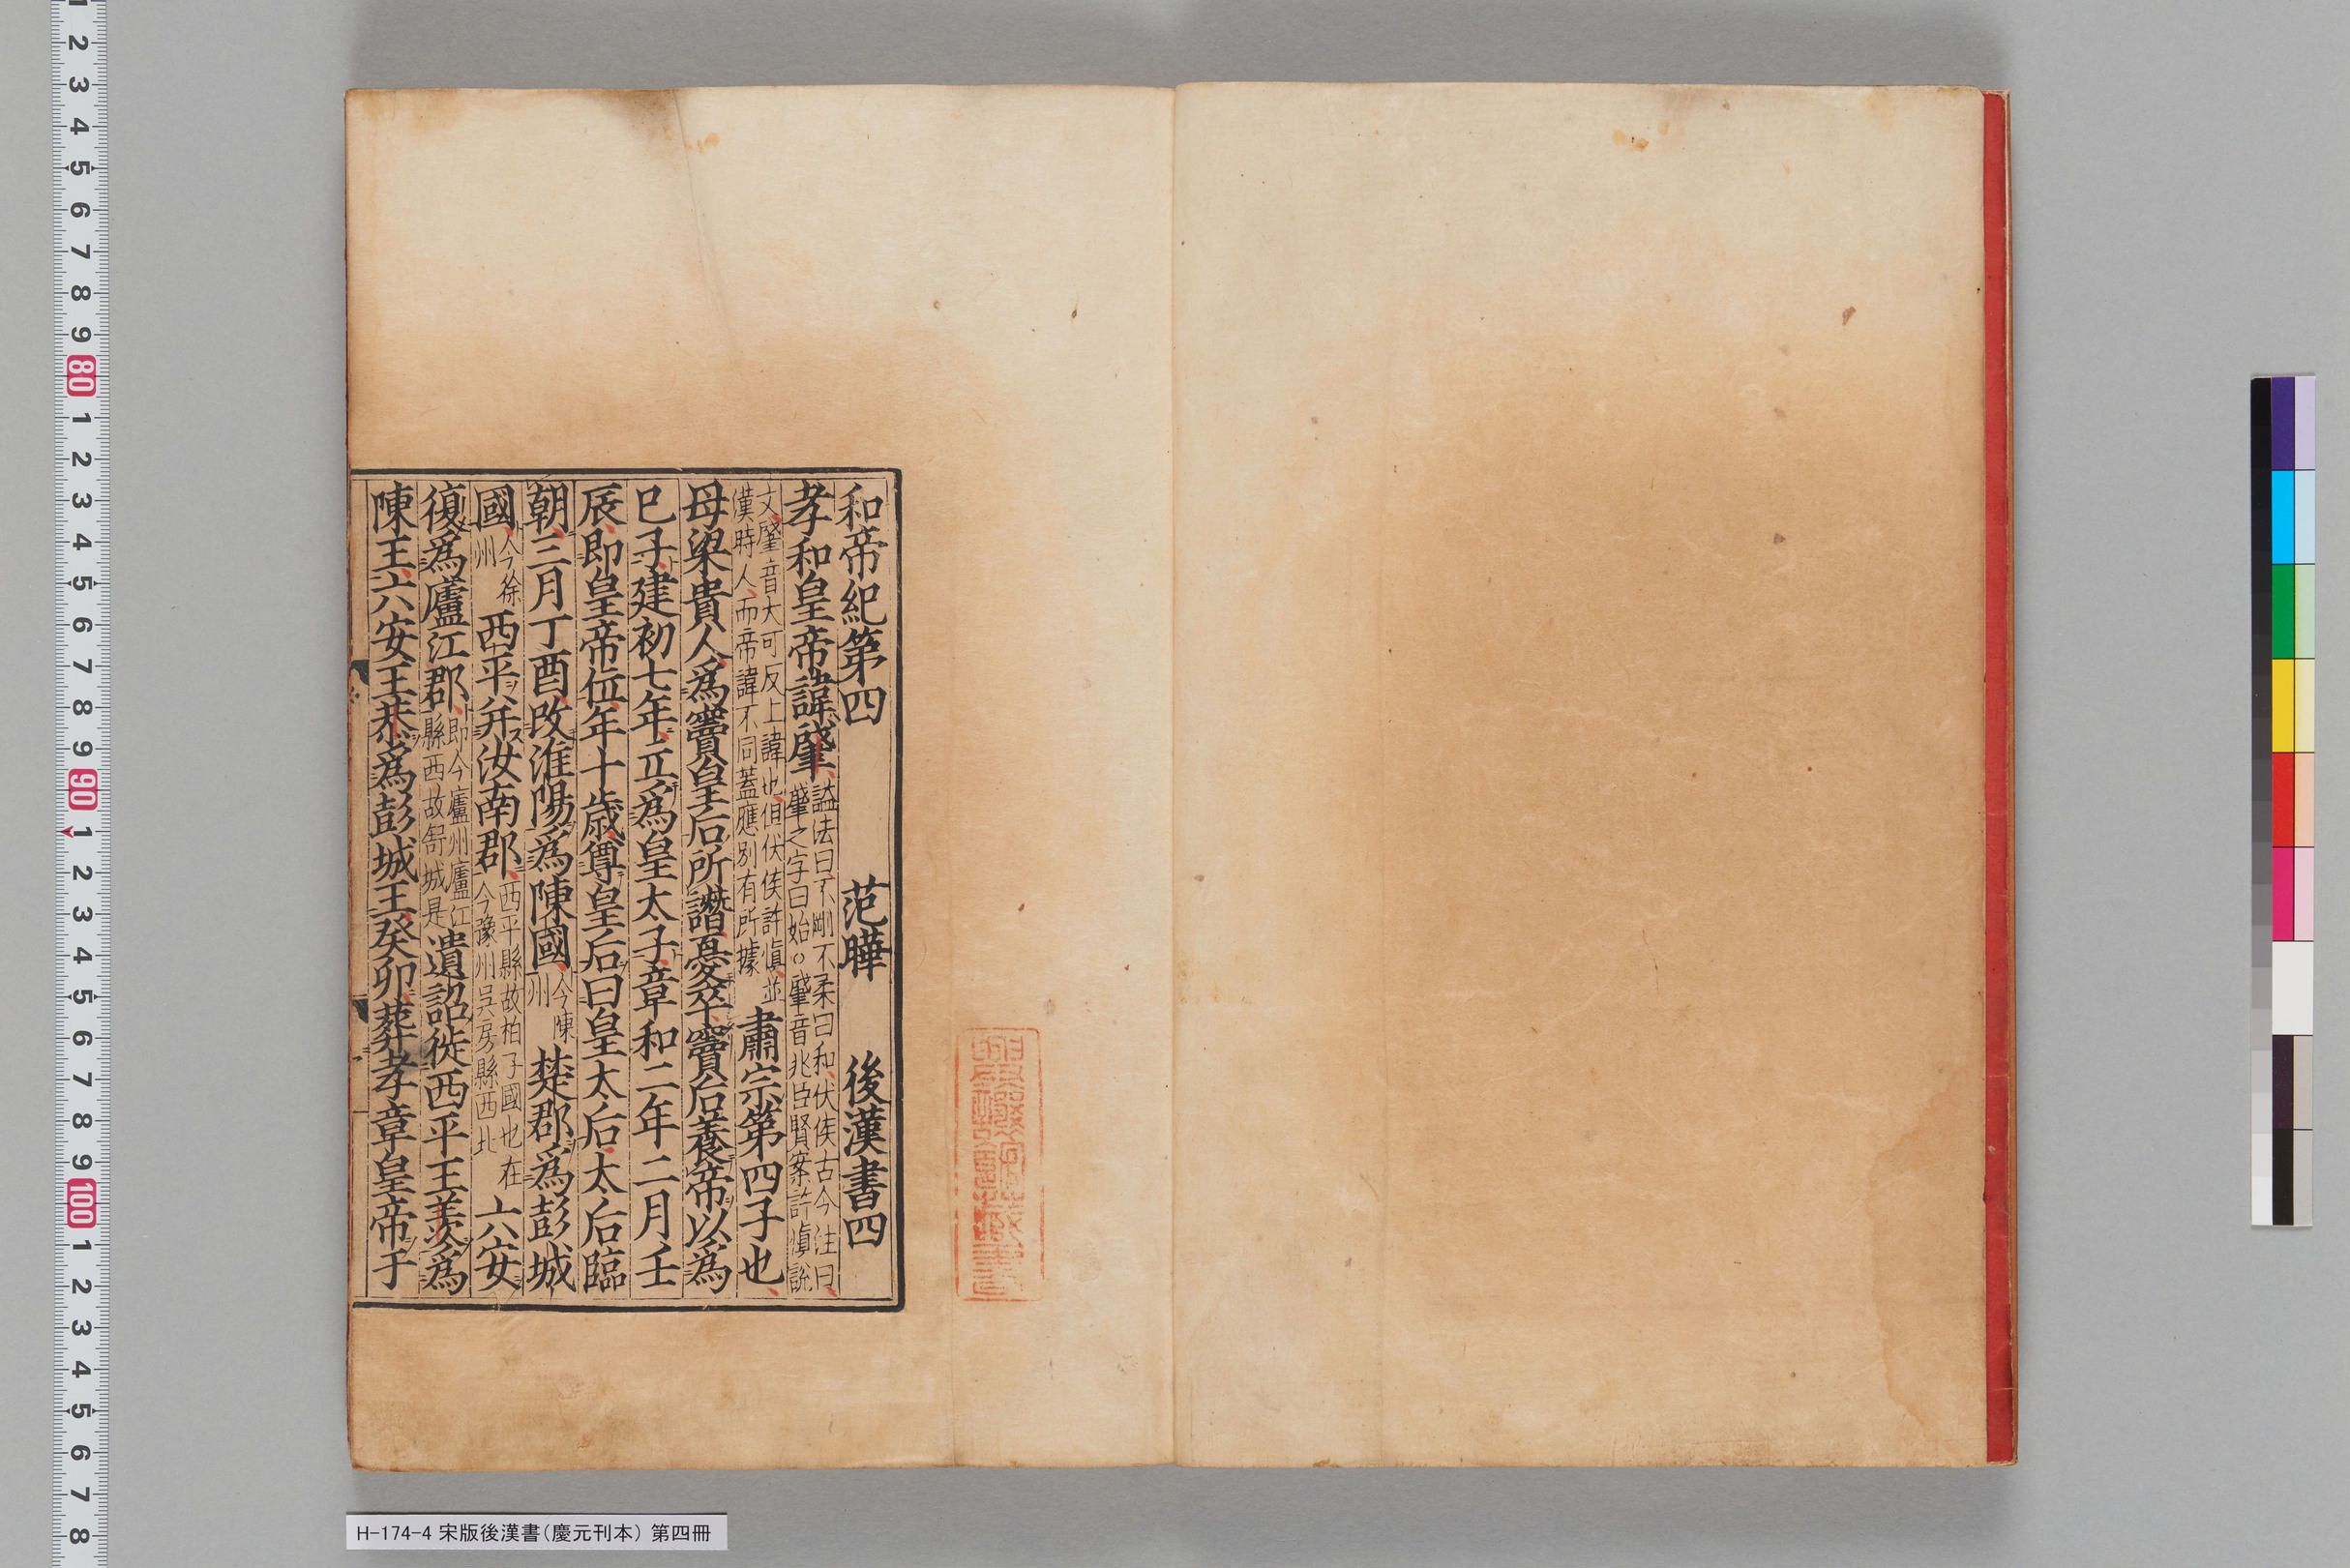 和帝紀第四 范曄 後漢書四
孝和皇帝諱肇 謚法曰不剛不柔曰和伏侯古今注曰肇之字曰始○肇音兆臣賢案許慎說
文肈音大可反上諱也但伏侯許慎並漢時人而帝諱不同蓋應別有所據 肅宗第四子也
母梁貴人爲竇皇后所譖憂卒竇后養帝以爲
巳子建初七年立爲皇太子章和二年二月壬
辰即皇帝位年十歲尊皇后曰皇太后太后臨
朝三月丁酉改淮陽爲陳國 今陳州 楚郡爲彭城
國 今徐州 西平并汝南郡 西平縣故柏子國也在今豫州吳房縣西北 六安
復爲廬江郡 即今廬州廬江縣西故舒城是 遺詔徙西平王羨爲
陳王六安王恭爲彭城王癸卯葬孝章皇帝于
H-174-4 宋版後漢書（慶元刊本） 第四冊
2
3
4
5
6
7
8
9
80
1
2
3
4
5
6
7
8
9
90
1
2
3
4
5
6
7
8
9
100
1
2
3
4
5
6
7
8